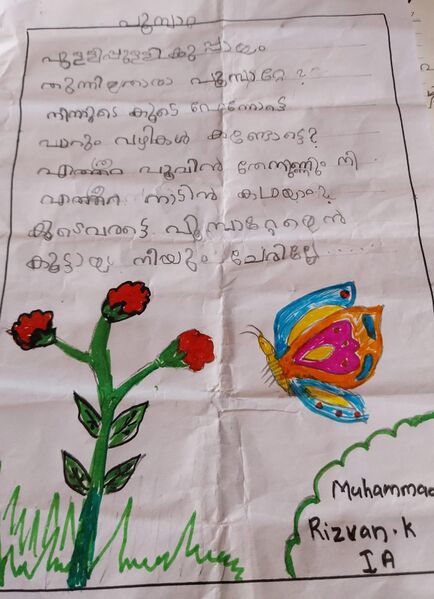 പൂമ്പാറ്റ
പുള്ളിപ്പുള്ളികുപ്പായം
തുന്നിയതാരാ പൂമ്പാറ്റേ?
നിന്നുടെ കൂടെ പോന്നോട്ടെ
പാറും വഴികൾ കണ്ടോട്ടെ?
എത്തറ പൂവിൻ തേനുണ്ണും നീ
എത്തറ നാടിൻ കഥയറീം?
കൂടെവരട്ടെ പൂമ്പാറ്റേയെൻ
കൂട്ടായ് നീയും ചേരില്ലേ......
Muhammad
Rizvan.K
I A